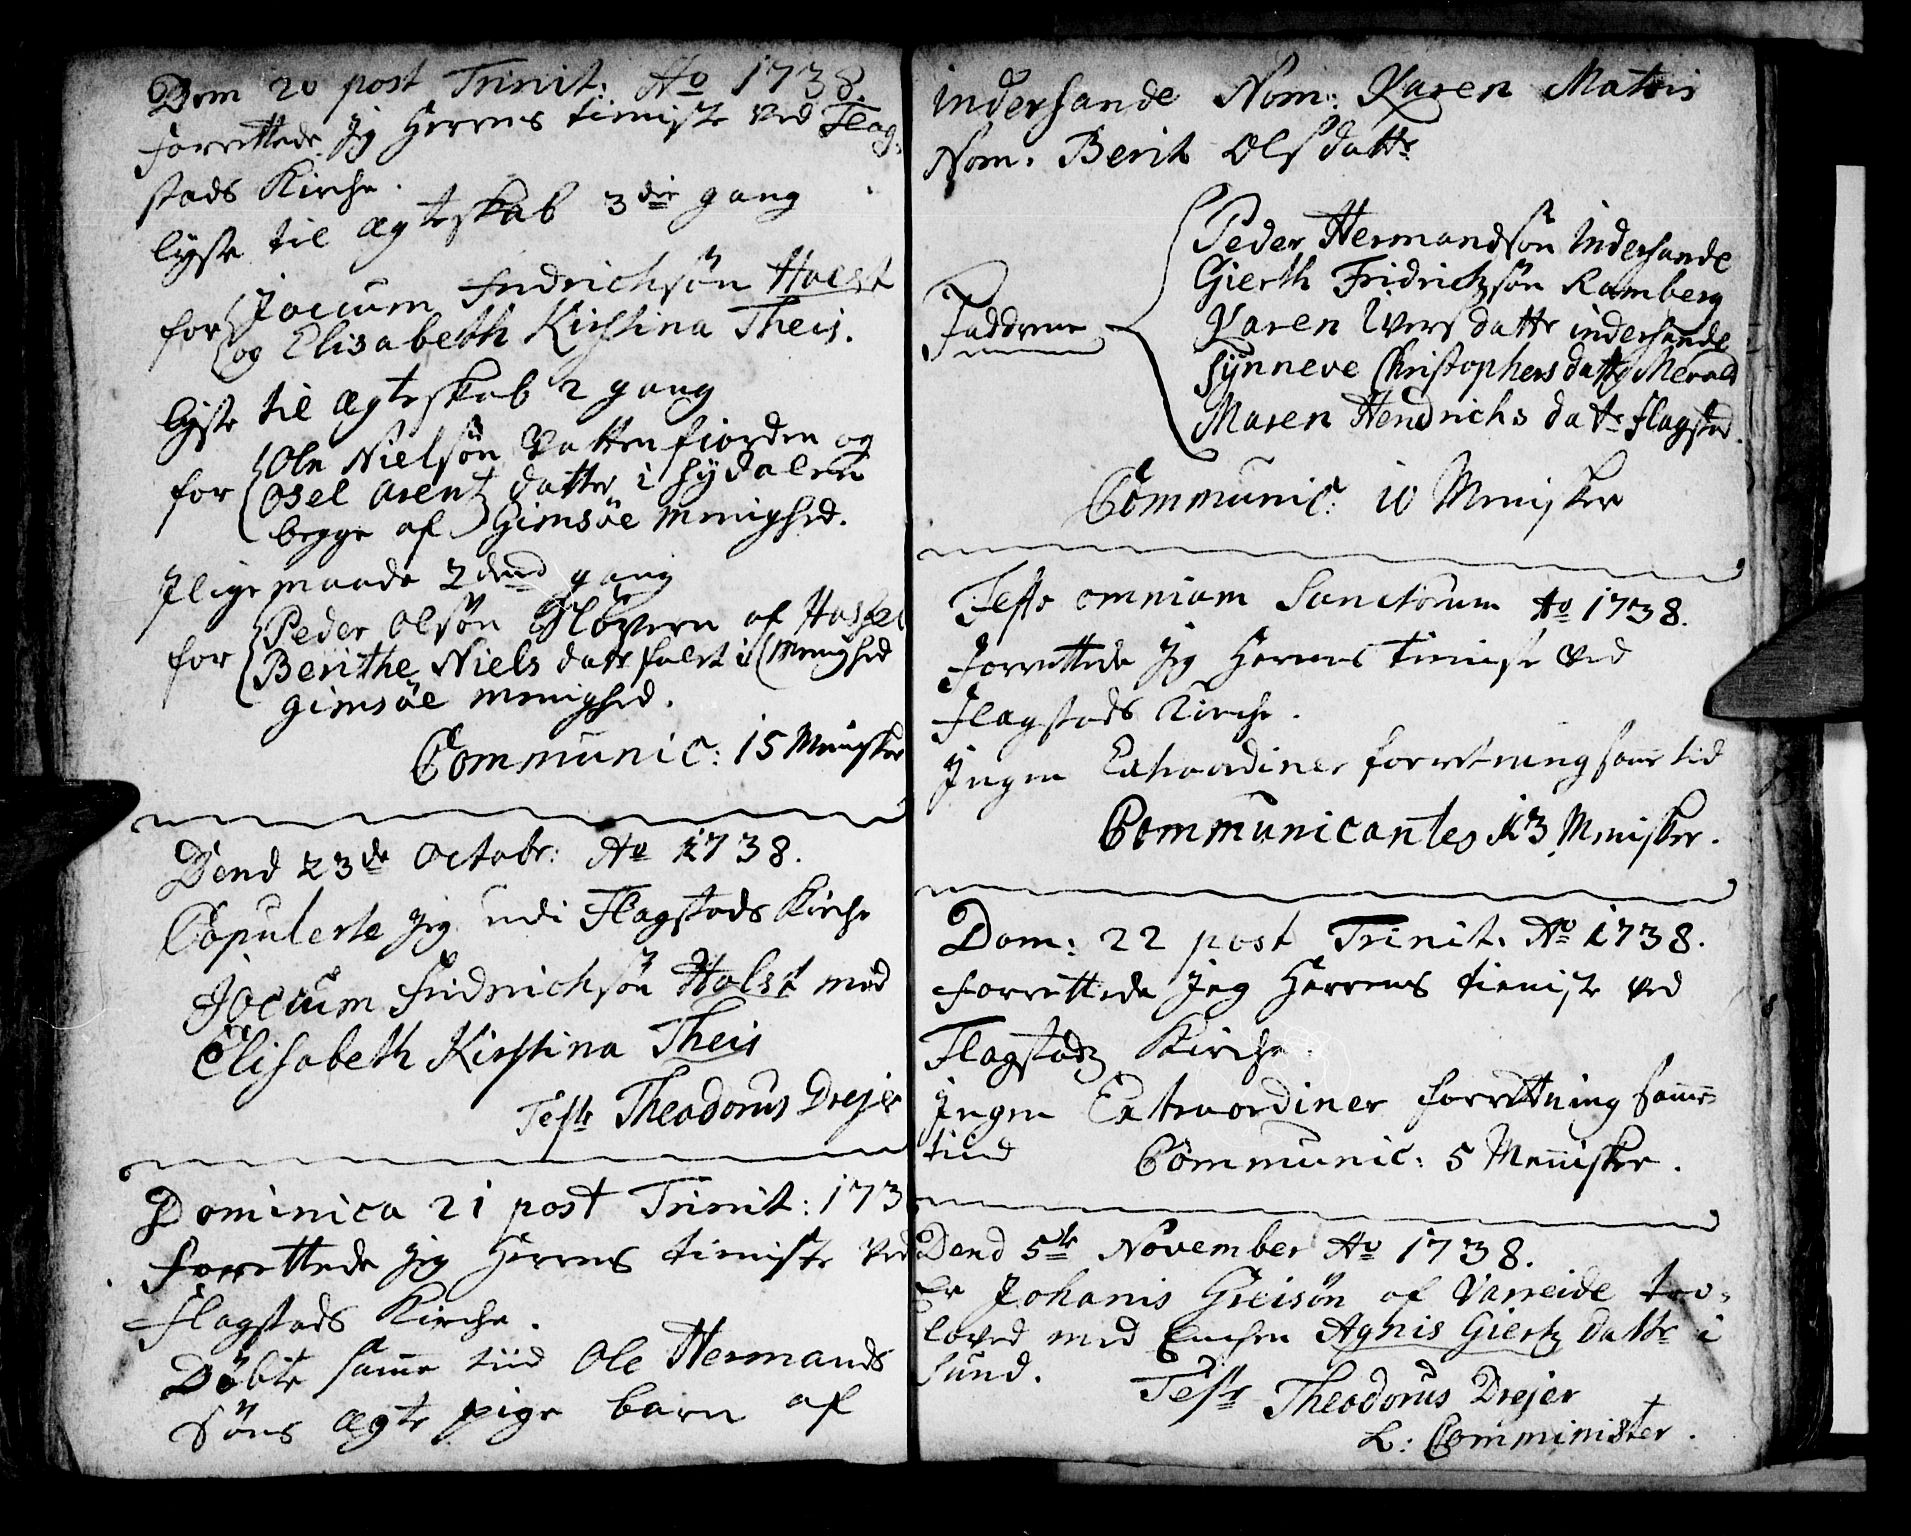 Dom 20 post Trinit: Ao 1738.
forrettede Jeg Herrens tieniste ved Flag-
stads Kirche.
lyste til Ægteskab 3die gang
for Jocum Fridrichsön Holst
og Elisabeth Kirstina Theis.
lyste til Ægteskab 2 gang
for Ole Nielsön Vattenfiorden og
Osel Arentz datter i Sydalen
begge af Gimsöe Menighed.
Ligemaade 2dend gang
for Peder Olsön af Hassel
Berithe Niels datr i Menighed
Gimsöe Menighed.
Communic: 15 Menisker
Dend 23de Octobr: Ao 1738.
Copulerte Jeg udi Flagstads Kirche
Jocum Fridrichsön Holst med
Elisabeth Kirstina Theis
Teste Theodorus Drejer
Dominica 21 post Trinit: 173
forrettede Jeg Herrens tieniste ved
Flagstads Kirche.
Döbte samme tiid Ole Hermands
Söns ægte pige barn af
Indersande Nom: Karen Matris
Nom. Berit Olsdattr
Peder Hermandsön Indersande
Gierth Fridrichsön Ramberg
Fadderne Karen Iversdattr indersande
Synneve Christophersdattr
Maren Hendrichs dattr Flagstad.
Communic: 10 Menisker
Festo omnium Sanctorum Ao 1738.
forrettede Jeg Herrens tieniste ved
Flagstads Kirche.
Ingen Extraordiner forretning same tid
Communicantes 13 Menisker.
Dom: 22 post Trinit. Ao 1738.
forrettede Jeg Herrens tieniste ved
Flagstadz Kirche.
Ingen Extraordiner forretning same
tiid Communic: 5 Menisker.
Dend 5te November Ao 1738.
Er Johanis Greisön af Varreide tro-
loved med Enchen Agnis Giertz datter i
Sund.
Teste Theodorus Drejer
L: Comminister.